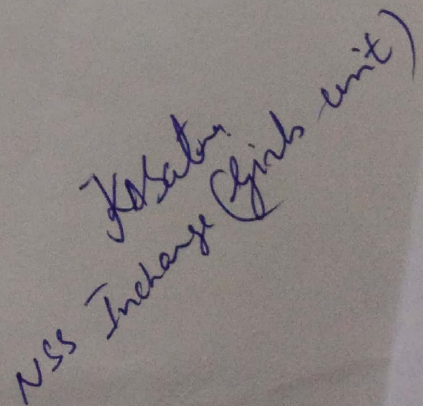 NSS Incharge (Girls unit)